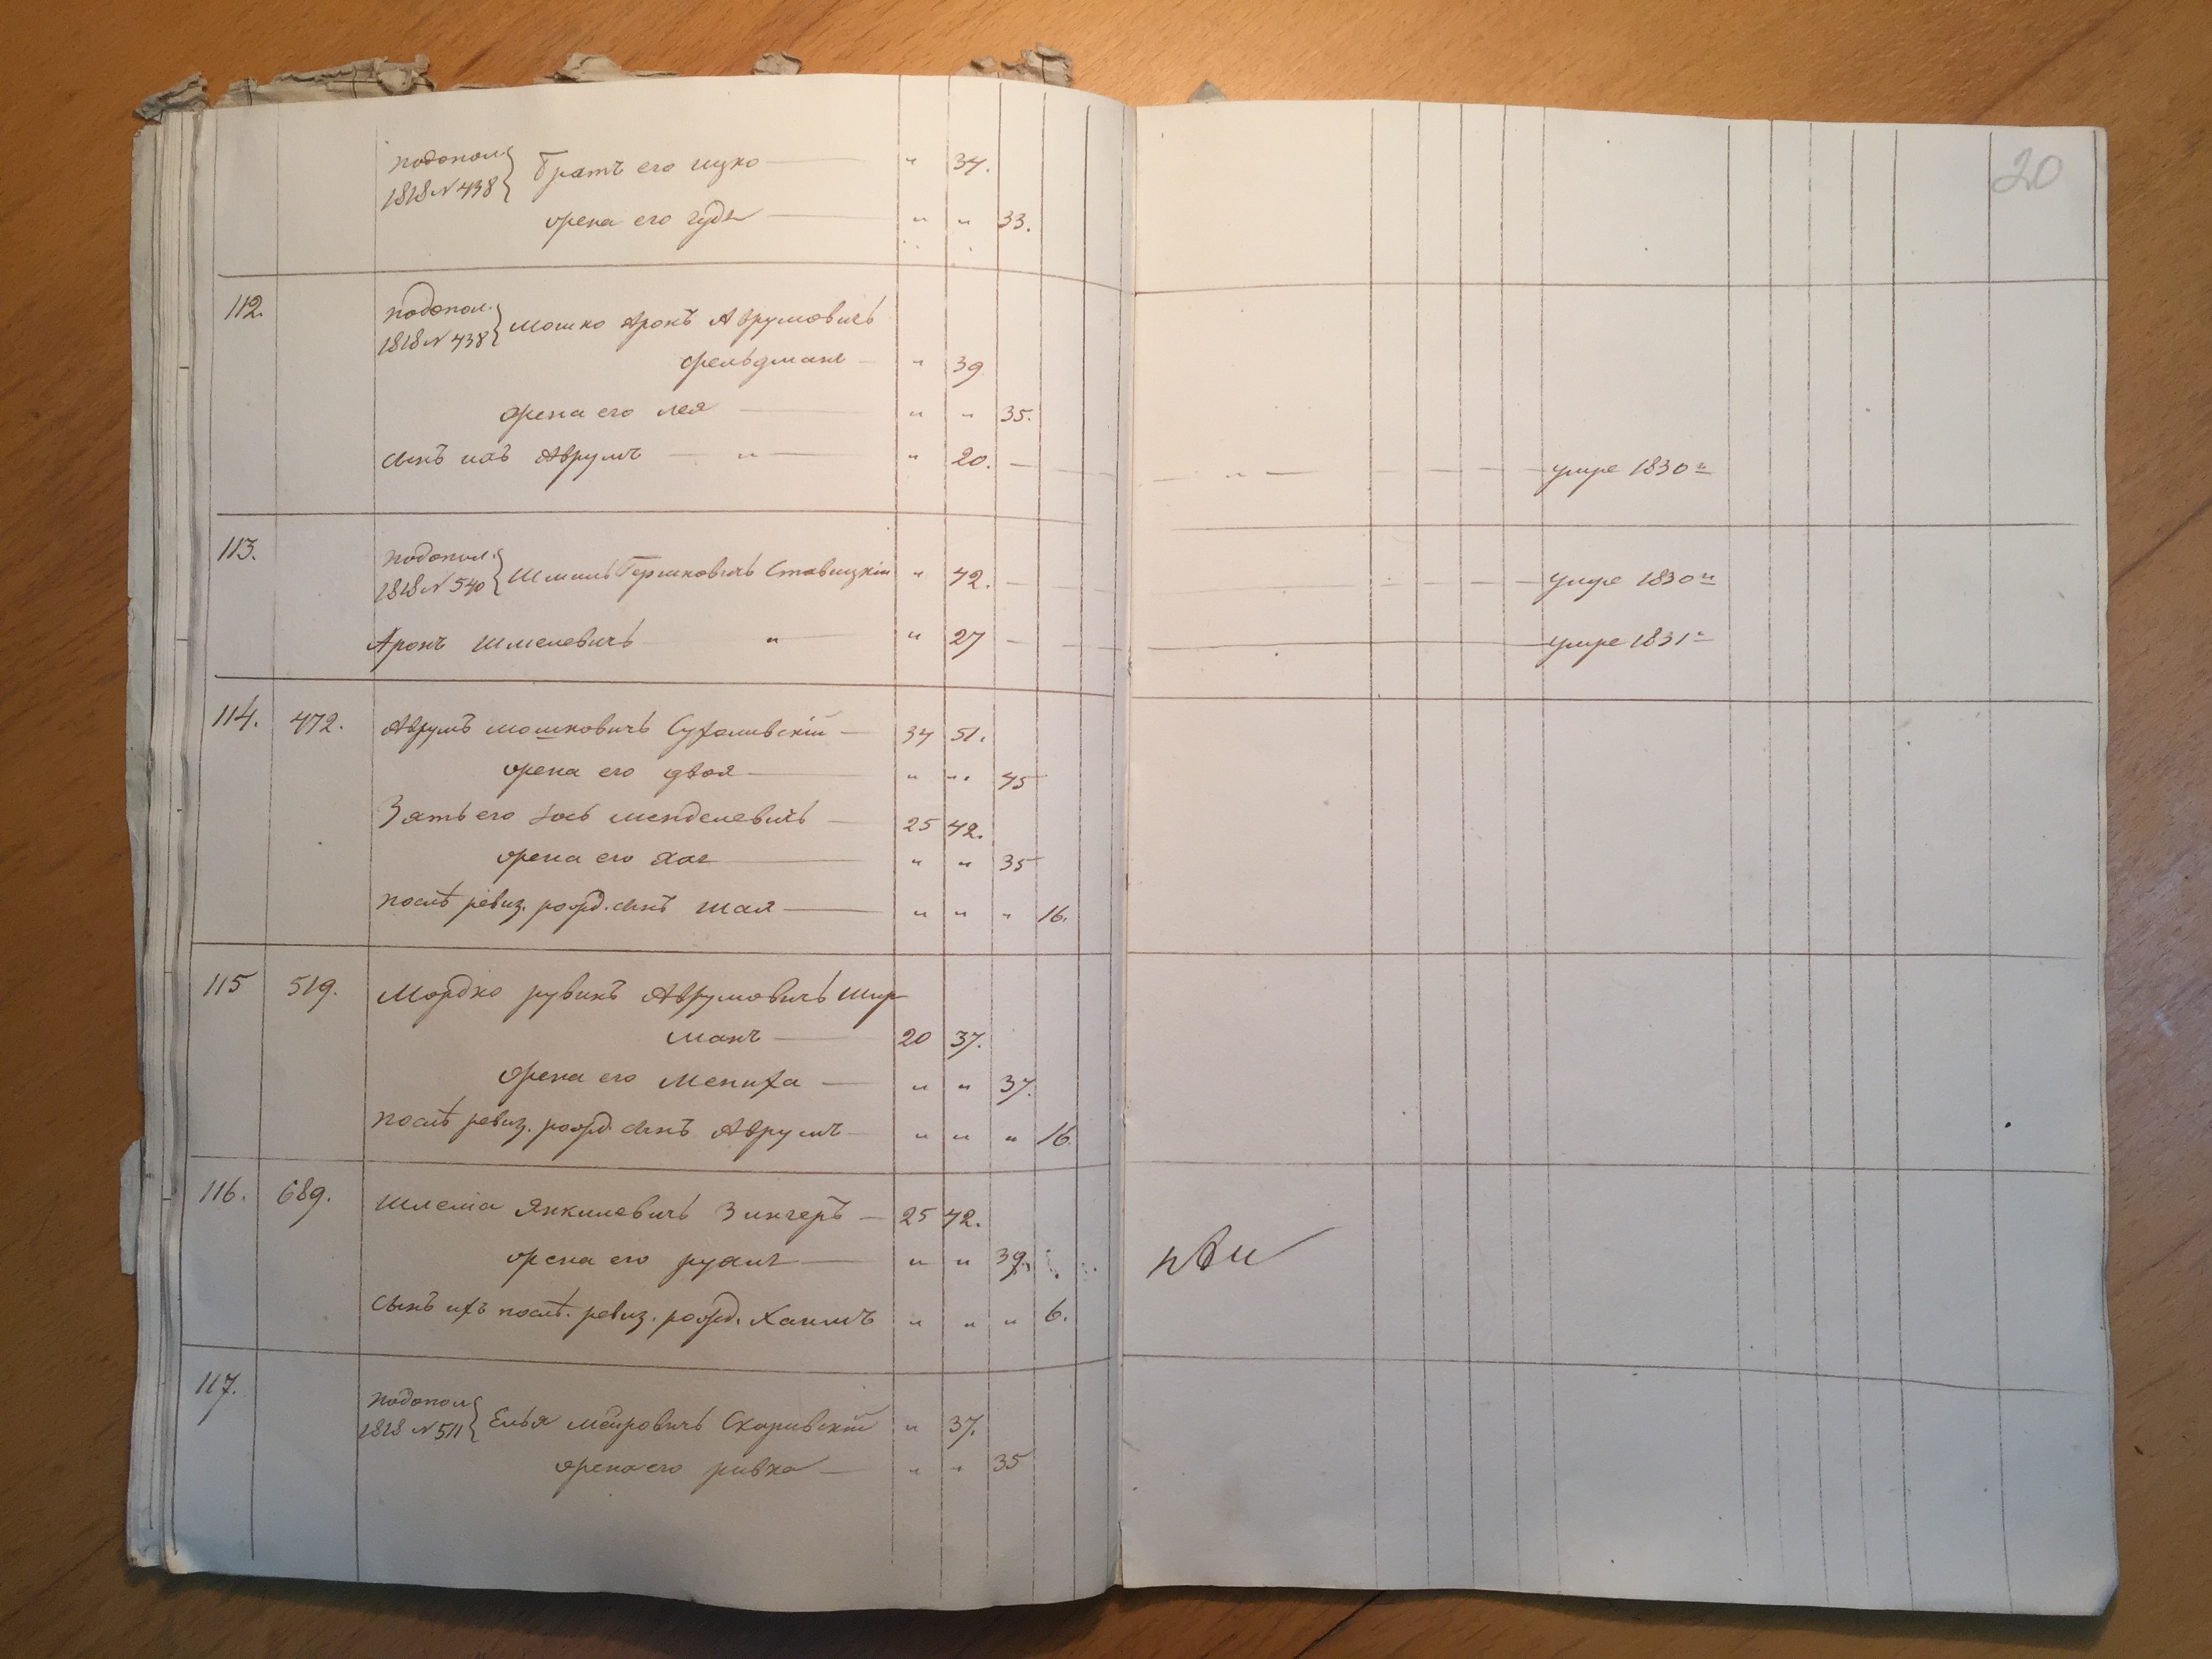 20
подопол.
1818 N 438 } братъ его ицко — " 34.
жена его гудя — " " 33.
112. подопол.
1818 N 438 } Мошко Аронъ Аврумовичь
Фельдманъ — " 39
жена его лея — " " 35.
сынъ ихъ Аврумъ — " — " 20. — — " — — — — умре 1830 г
113. подопол.
1818 N 540 } Шмиль Гершковичь Ставицкій " 42. — — — — умре 1830 г
Аронъ Шмелевичь " " 27 — — умре 1831 г
114. 472. Аврумъ мошковичь Сухоливскій — 34 51.
жена его двоя — " " 45
Зять его Іось менделевичь — 25 42.
жена его хая — " " 35
послѣ ревиз. рожд. сынъ шая — " " " 16.
115 519. Мордко рувинъ Аврумовичь Шир
манъ — 20 37.
жена его Мениха — " " 37.
послѣ ревиз. рожд. сынъ Аврумъ — " " " 16.
116. 689. Шлема Янкилевичь Зингеръ — 25 42.
жена его — " " 39.
сынъ ихъ послѣ. ревиз. рожд. Хаимъ " " " 6.
117. подопол.
1818 N 511 } Елья меировичь Скаривскій " 37.
жена его ривка — " " 35